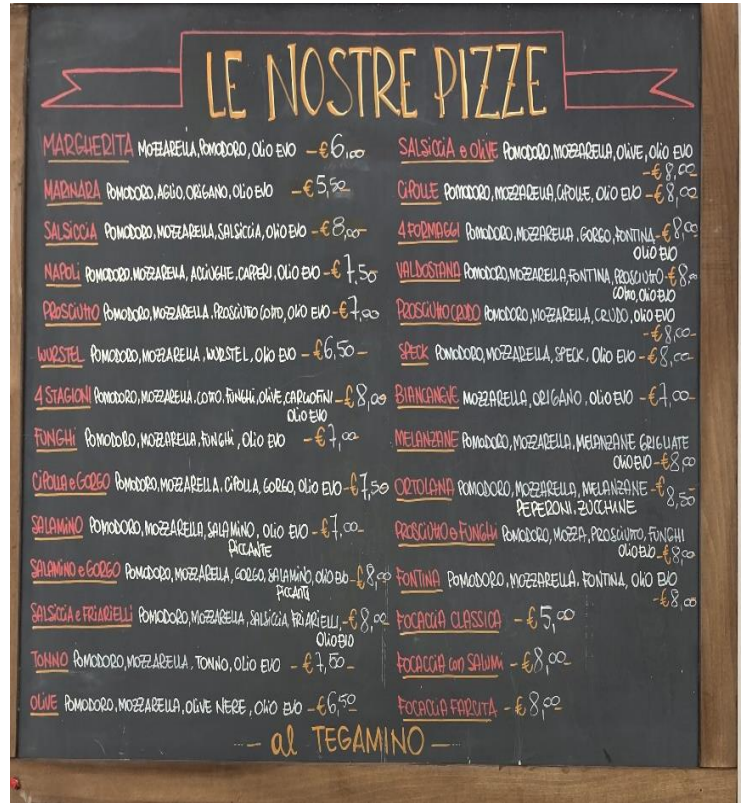 LE NOSTRE PIZZE
MARGHERITA MOZZARELLA, POMODORO, OLIO EVO -€6,00
MARINARA POMODORO, AGLIO, ORIGANO, OLIO EVO -€5,50
SALSICCIA POMODORO, MOZZARELLA, SALSICCIA, OLIO EVO -€8,00
NAPOLI POMODORO, MOZZARELLA, ACCIUGHE, CAPPERI, OLIO EVO -€7,50
PROSCIUTTO POMODORO, MOZZARELLA, PROSCIUTTO COTTO, OLIO EVO -€7,00
WURSTEL POMODORO, MOZZARELLA, WURSTEL, OLIO EVO -€6,50-
4 STAGIONI POMODORO, MOZZARELLA, COTTO, FUNGHI, OLIVE, CARCIOFINI -€8,00
OLIO EVO
FUNGHI POMODORO, MOZZARELLA, FUNGHI, OLIO EVO -€7,00
CIPOLLA e GORGO POMODORO, MOZZARELLA, CIPOLLA, GORGO, OLIO EVO -€7,50
SALAMINO POMODORO, MOZZARELLA, SALAMINO, OLIO EVO -€7,00-
PICCANTE
SALAMINO e GORGO POMODORO, MOZZARELLA, GORGO, SALAMINO, OLIO EVO -€8,00
PICCANTI
SALSICCIA e FRIARIELLI POMODORO, MOZZARELLA, SALSICCIA FRIARIELLI, -€8,00
OLIO EVO
TONNO POMODORO, MOZZARELLA, TONNO, OLIO EVO -€7,50-
OLIVE POMODORO, MOZZARELLA, OLIVE NERE, OLIO EVO -€6,50
SALSICCIA e OLIVE POMODORO, MOZZARELLA, OLIVE, OLIO EVO
-€8,00
CIPOLLE POMODORO, MOZZARELLA, CIPOLLE, OLIO EVO -€8,00
4 FORMAGGI POMODORO, MOZZARELLA, GORGO, FONTINA -€8,00
OLIO EVO
VALDOSTANA POMODORO, MOZZARELLA, FONTINA, PROSCIUTTO -€8,00
COTTO, OLIO EVO
PROSCIUTTO CRUDO POMODORO, MOZZARELLA, CRUDO, OLIO EVO
-€8,00-
SPECK POMODORO, MOZZARELLA, SPECK, OLIO EVO -€8,00
BIANCANEVE MOZZARELLA, ORIGANO, OLIO EVO -€7,00-
MELANZANE POMODORO, MOZZARELLA, MELANZANE GRIGLIATE
OLIO EVO -€8,00
ORTOLANA POMODORO, MOZZARELLA, MELANZANE -€8,50
PEPERONI, ZUCCHINE
PROSCIUTTO e FUNGHI POMODORO, MOZZA, PROSCIUTTO, FUNGHI
OLIO EVO -€8,00
FONTINA POMODORO, MOZZARELLA, FONTINA, OLIO EVO
-€8,00
FOCACCIA CLASSICA -€5,00
FOCACCIA con SALUMI -€8,00-
FOCACCIA FARCITA -€8,00
-- al TEGAMINO --